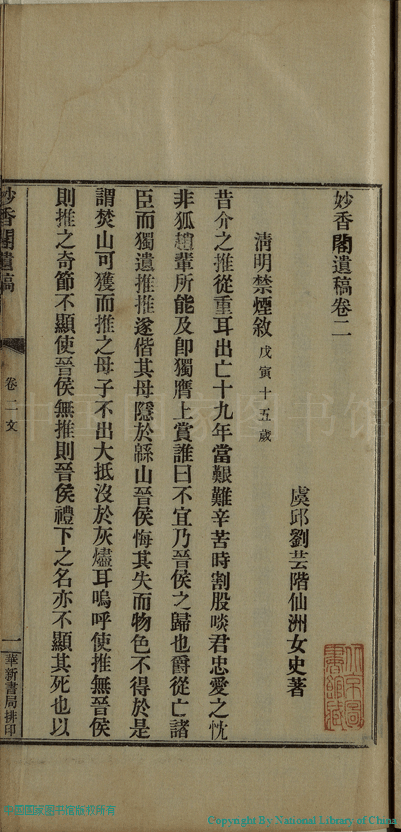 妙香閣遺稿卷二
虞邱劉芸階仙洲女史著
清明禁煙敘 戊寅十五歲
昔介之推從重耳出亡十九年當艱難辛苦時割股啖君忠愛之忱
非狐趙輩所能及即獨膺上賞誰曰不宜乃晉侯之歸也爵從亡諸
臣而獨遺推推遂偕其母隱於緜山晉侯悔其失而物色不得於是
謂焚山可獲而推之母子不出大抵沒於灰燼耳嗚呼使推無晉侯
則推之奇節不顯使晉侯無推則晉侯禮下之名亦不顯其死也以
妙香閣遺稿
卷二文
一
華新書局排印
中国国家图书馆
中国国家图书馆版权所有
Copyright By National Library of China